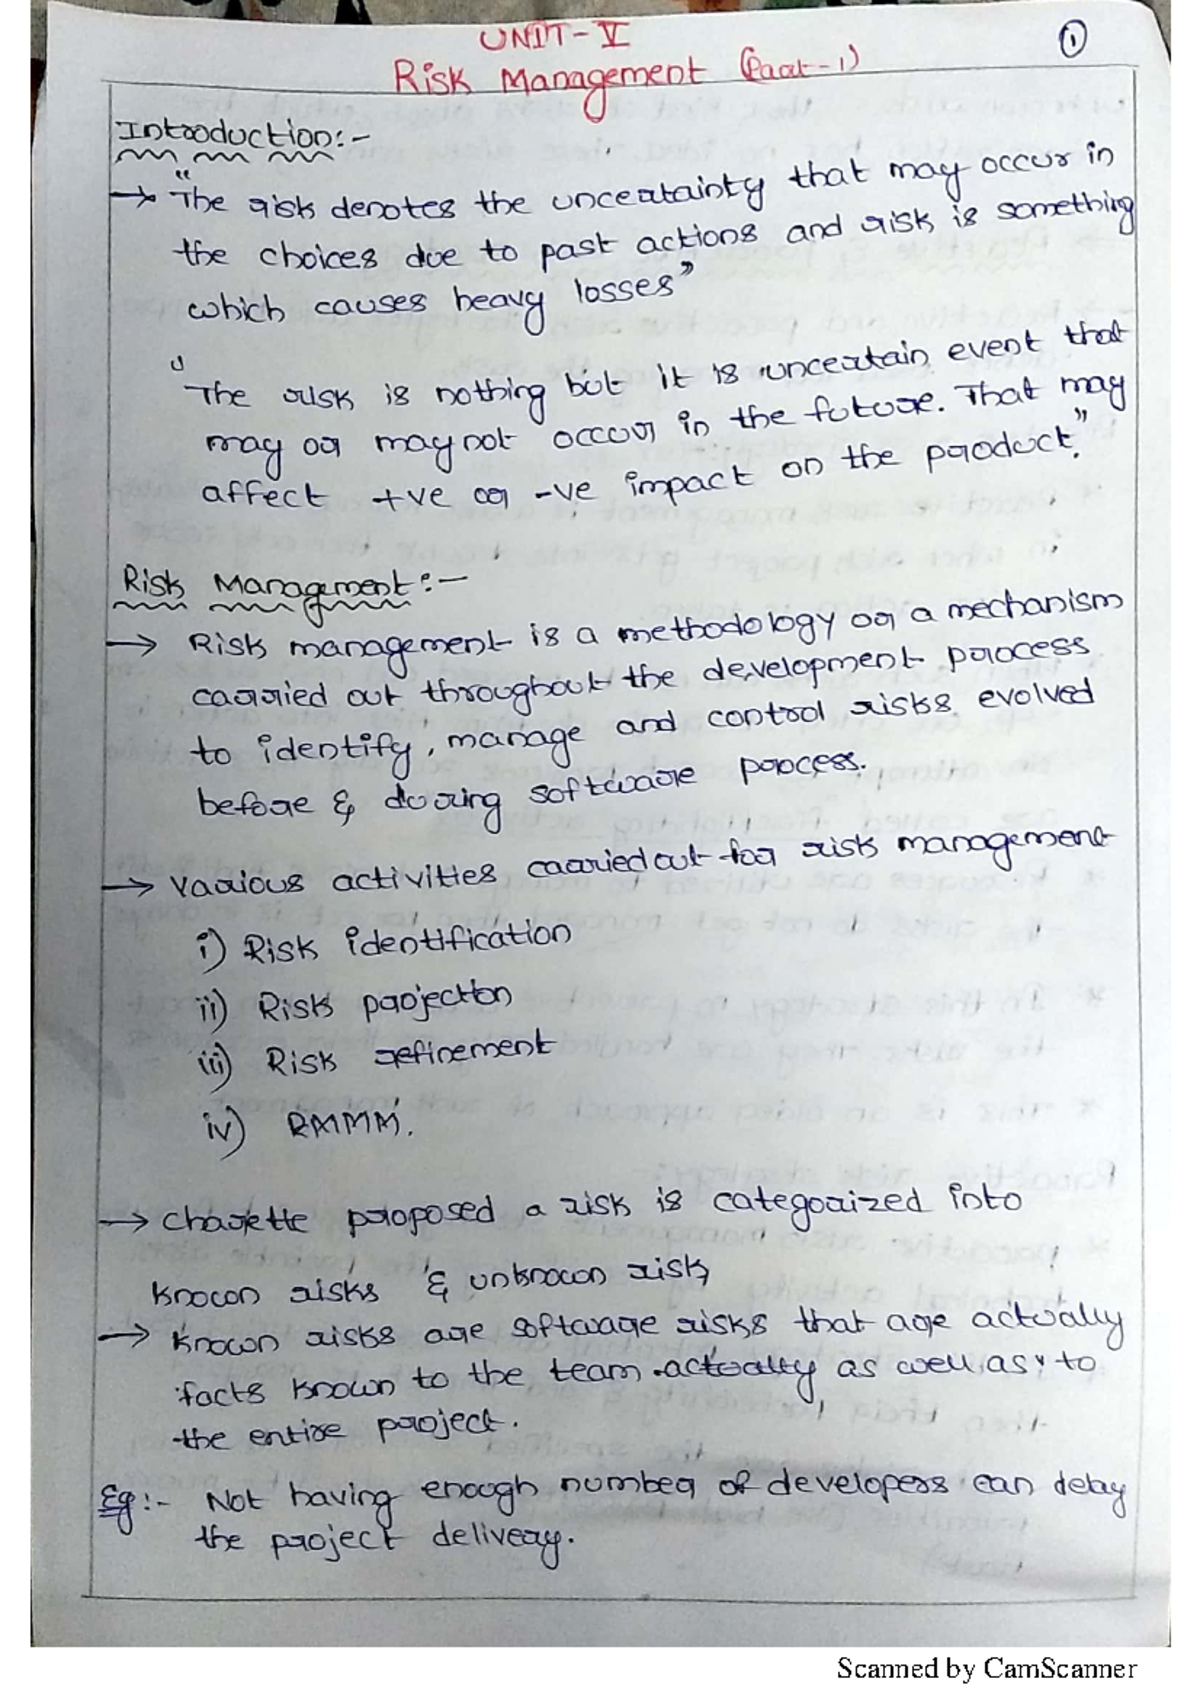 UNIT-V
①
Risk Management (Part-1)
Introduction:-
→ "The risk denotes the uncertainty that may occur in
the choices due to past actions and risk is something
which causes heavy losses"
"The risk is nothing but it is uncertain event that
may or may not occur in the future. That may
affect +ve or -ve impact on the product."
Risk Management:-
→ Risk management is a methodology or a mechanism
carried out throughout the development process
to identify, manage and control risks evolved
before & during software process.
→ Various activities carriedout for risk management
i) Risk identification
ii) Risk projection
iii) Risk refinement
iv) RMMM.
→ Charette proposed a risk is categorized into
known risks & unknown risk
→ Known risks are software risks that are actually
facts known to the team actually as well as to
the entire project.
Eg:- Not having enough number of developers can delay
the project delivery.
Scanned by CamScanner